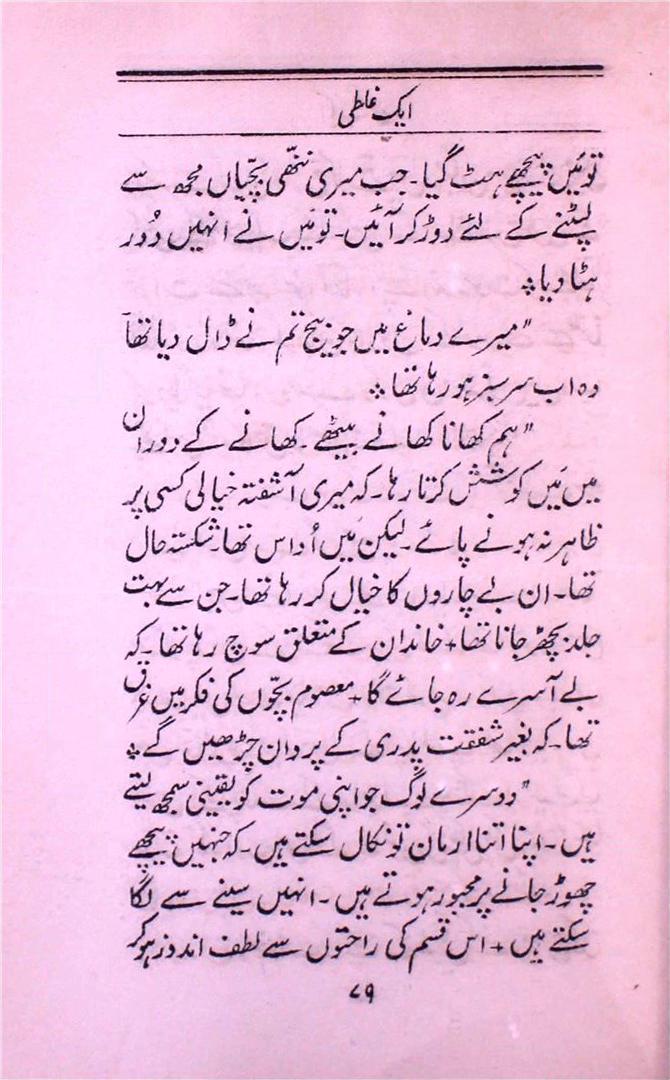 ایک غلطی
تو مَیں پیچھے ہٹ گیا۔ جب میری ننھّی بچّیاں مجھ سے
لپٹنے کے لئے دوڑ کر آئیں۔ تو مَیں نے انہیں دُور
ہٹا دیا ٭
"میرے دماغ میں جو بیج تم نے ڈال دیا تھا
وہ اب سرسبز ہو رہا تھا ٭
"ہم کھانا کھانے بیٹھے۔ کھانے کے دوران
میں مَیں کوشش کرتا رہا۔ کہ میری آشفتہ خیالی کسی پر
ظاہر نہ ہونے پائے۔ لیکن مَیں اُداس تھا۔ شکستہ حال
تھا۔ ان بے چاروں کا خیال کر رہا تھا۔ جن سے بہت
جلد بچھڑ جانا تھا + خاندان کے متعلق سوچ رہا تھا۔ کہ
بے آسرے رہ جائے گا + معصوم بچّوں کی فکر میں غرق
تھا۔ کہ بغیر شفقت پدری کے پروان چڑھیں گے ٭
"دوسرے لوگ جو اپنی موت کو یقینی سمجھ لیتے
ہیں۔ اپنا اتنا ارمان تو نکال سکتے ہیں۔ کہ جنہیں پیچھے
چھوڑ جانے پر مجبور ہوتے ہیں۔ انہیں سینے سے لگا
سکتے ہیں + اس قسم کی راحتوں سے لطف اندوز ہو کر
۷۹